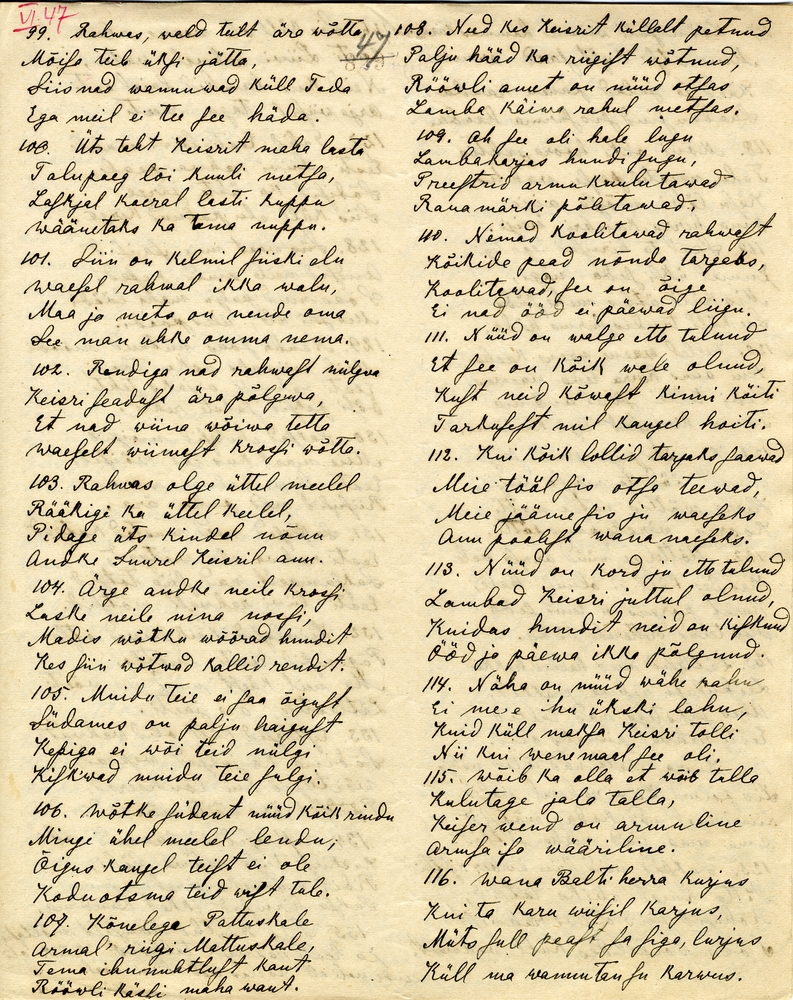 VI.47
47
99. Rahwas, weld tult ära wõtta,
Mõisa teib üksi jätta,
Siis nad wannuwad küll Teda
Ega meil ei tee see häda.
100. Üts taht Keisrit maha lasta
Talupoeg lõi kuuli metsa,
Laskjal kaeral lasti kuppu
wäänetaks ka tema nuppu.
101. Siin on kelmil siiski alu
waesel rahwal ikka walu,
Maa ja mets on nende oma
See man uhke omma nema.
102. Rendiga nad rahwast nülgwa
Keisri seadust ära põlgwa,
Et nad wiina wõiwa tetta
waeselt wiimast krossi wõtta.
103. Rahwas olge üttel meelel
Rääkige ka üttel keelel,
Pidage üts kindel nõuu
Andke Suurel Keisril auu.
104. Ärge andke neile krossi
Laske neile nina nossi,
Madis wõtku wõõrad hundit
Kes siin wõtwad kallid rendit.
105. Muidu Teie ei saa õigust
Südames on palju haigust
Kepiga ei wõi teid nülgi
Kiskwad muidu teie sulgi.
106. wõtke südant nüüd kõik rindu
Mingi ühel meelel lendu;
Õigus kaugel teist ei ole
Kodu otsma teid wist tule.
107. Kõnelege Pattuskale
Armal' riigi Mattuskale,
Tema ihnuhtlust kaut
Rööwli kässi maha waut.
108. Need kes Keisrit küllalt petnud
Palju hääd ka riigist wõtnud,
Rööwli amet on nüüd otsas
Lamba käiwa rahul metsas.
109. Oh see oli hale lugu
Lambakarjas hundi sugu,
Preestrid armu kuulutawad
Rauamärki põletawad.
110. Nemad koolitawad rahwast
Kõikide pead nõnda targaks,
Koolitawad, see on õige
Ei nad ööd ei päewad liigu.
111. Nüüd on walge ette tulnud
Et see on kõik wale olnud,
Kust neid kõwast kinni köiti
Tarkusest meil kaugel hoiti.
112. Kui kõik lollid targaks saawad
Meie tööl siis otsa teewad,
Meie jääme siis ju waeseks
Auu poolest wana naeseks.
113. Nüüd on kord ju ette tulnud
Lambad Keisri juttul olnud,
Kuidas hundit neid on kisknud
Ööd ja päewa ikka põlgnud.
114. Näha on nüüd wähe rahu
Ei meie ihu ükski lahu,
Kuid küll maksa Keisri tolli
Nii kui wenemaal see oli.
115. wõib ka olla et wõib talla
Kulutage jala talla,
Keiser wend on armuline
Armsa isa wääriline.
116. wana Balti herra kurjus
Kui ta karu wiisil karjus,
Müts sull peast sa siga, lurjus
Küll ma wannutan su karwus.